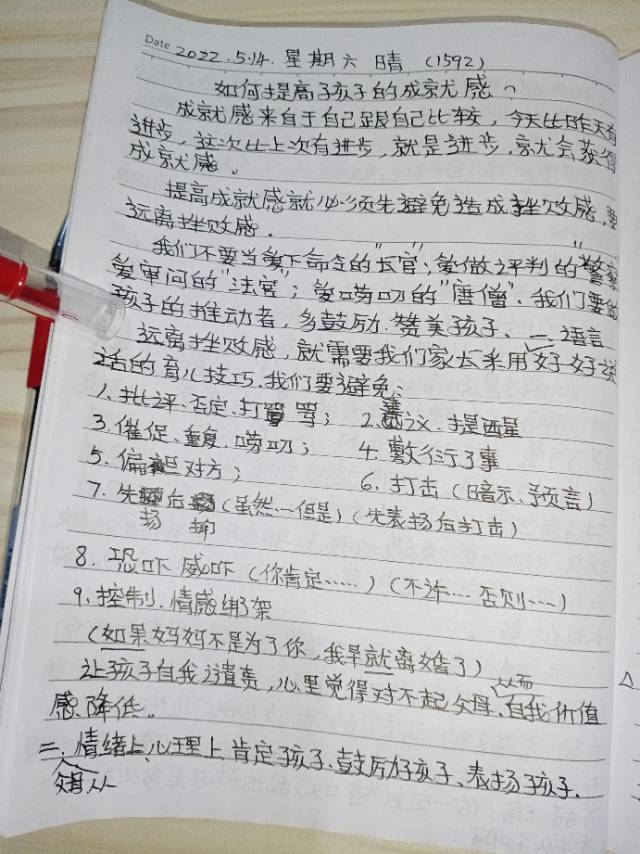 Date 2022.5.14. 星期六 晴 (1592)
如何提高孩子的成就感？
成就感来自于自己跟自己比较，今天比昨天有
进步，这次比上次有进步，就是进步，就会获得
成就感。
提高成就感就必须先避免造成挫败感，要
远离挫败感。
我们不要当爱下命令的"长官"；爱做评判的"警察"
爱审问的"法官"；爱唠叨的"唐僧"．我们要做
孩子的推动者，多鼓励．赞美孩子、一、语言
远离挫败感，就需要我们家长采用好好说
话的育儿技巧．我们要避免：
1、批评．否定．打骂；
2．提醒
3．催促、重复．唠叨；
4．敷衍了事
5．偏袒对方；
6．打击（暗示．预言）
7．先扬后抑（虽然…但是）（先表扬后打击）
8．恐吓 威吓（你肯定……）（不许…．否则…）
9．控制．情感绑架
（如果妈妈不是为了你，我早就离婚了）
让孩子自我谴责，心里觉得对不起父母、从而自我价值
感降低。
二．情绪上、心理上肯定孩子．鼓励好孩子、表扬孩子．